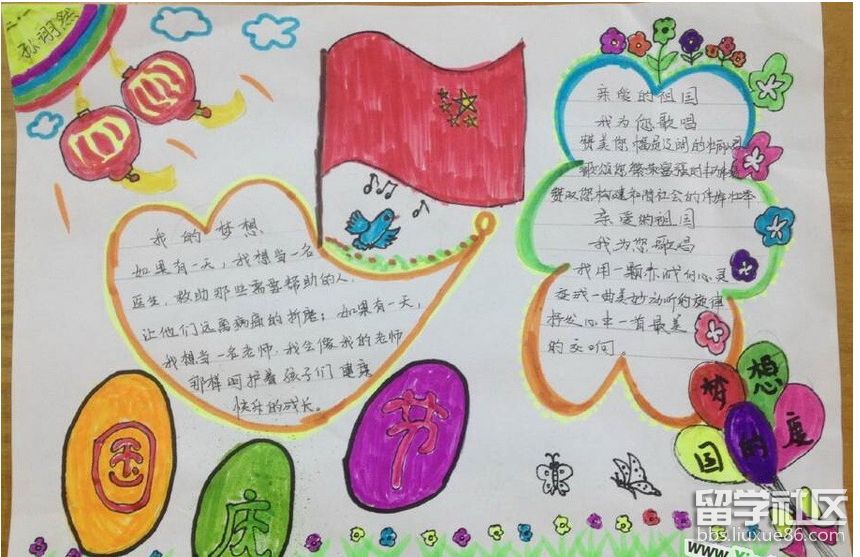 孙诩然
我的梦想
如果有一天，我想当一名
医生，救助那些需要帮助的人，
让他们远离病痛的折磨；如果有一天，
我想当一名老师，我会像我的老师
那样呵护着孩子们健康
快乐的成长。
亲爱的祖国
我为您歌唱
赞美您幅员辽阔的
歌颂您繁荣富强的
赞叹您构建和谐社会的
亲爱的祖国
我为您歌唱
我用一颗赤诚的心灵
一曲美妙动听的旋律
一首最美
的
国
庆
节
梦想
国的度
留学社区
bbs.liuxue86.com